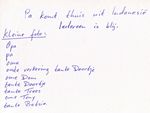 Pa komt thuis uit Indonesië
Iedereen is blij.
Kleine foto:
Opa
pa
oma
tante Doortje
ome Dom
tante Doortje
tante Toos
ome Tony
tante